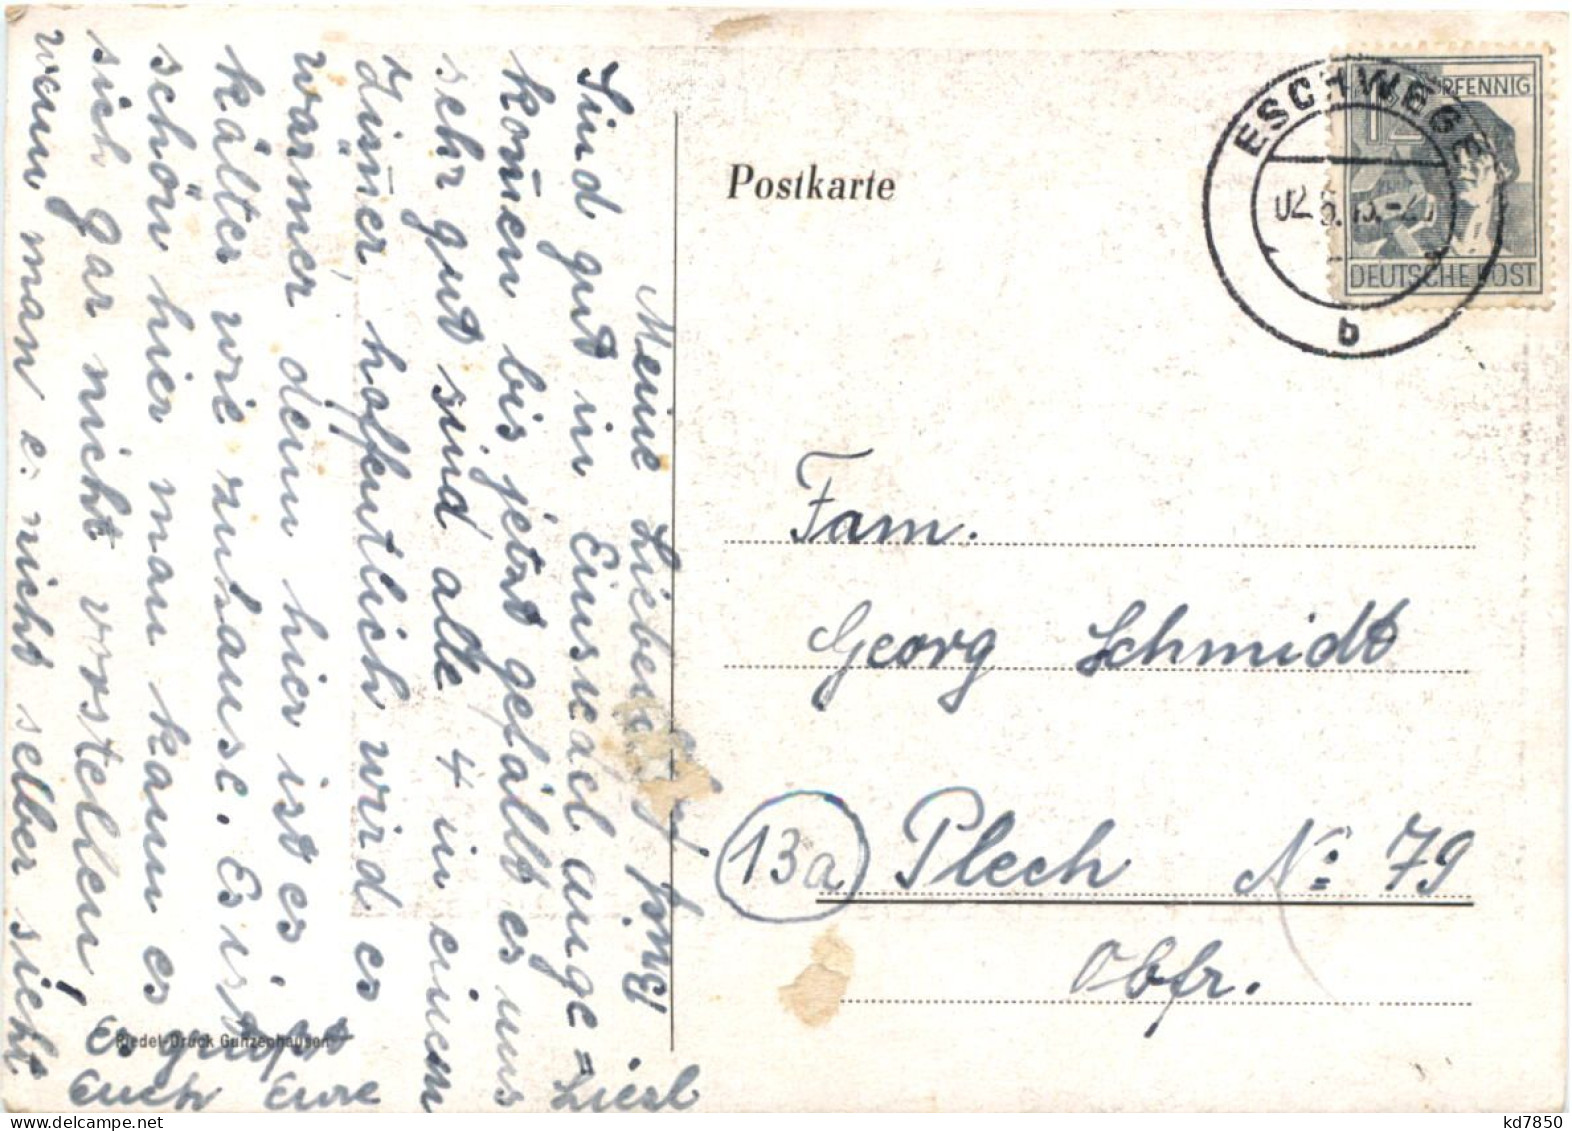 Meine Lieben
Sind gut in Einsreäl ange=
komen bis jetzt gefällt es uns
sehr gut sind alle 4 in einem
Zimer, hoffentlich wird es
wärmer, denn hier ist es
kälter wie zuhause. Es ist
schön hier man kann es
sich gar nicht vorstellen,
wenn man e: nicht selber sieht
Es grüßt
Euch Eure
Liesl
Riedel-Druck Gunzenhausen
Postkarte
ESCHWEGE
b
PFENNIG
DEUTSCHE POST
Fam.
Georg Schmidt
13a Plech No: 79
Obfr.
kd7850